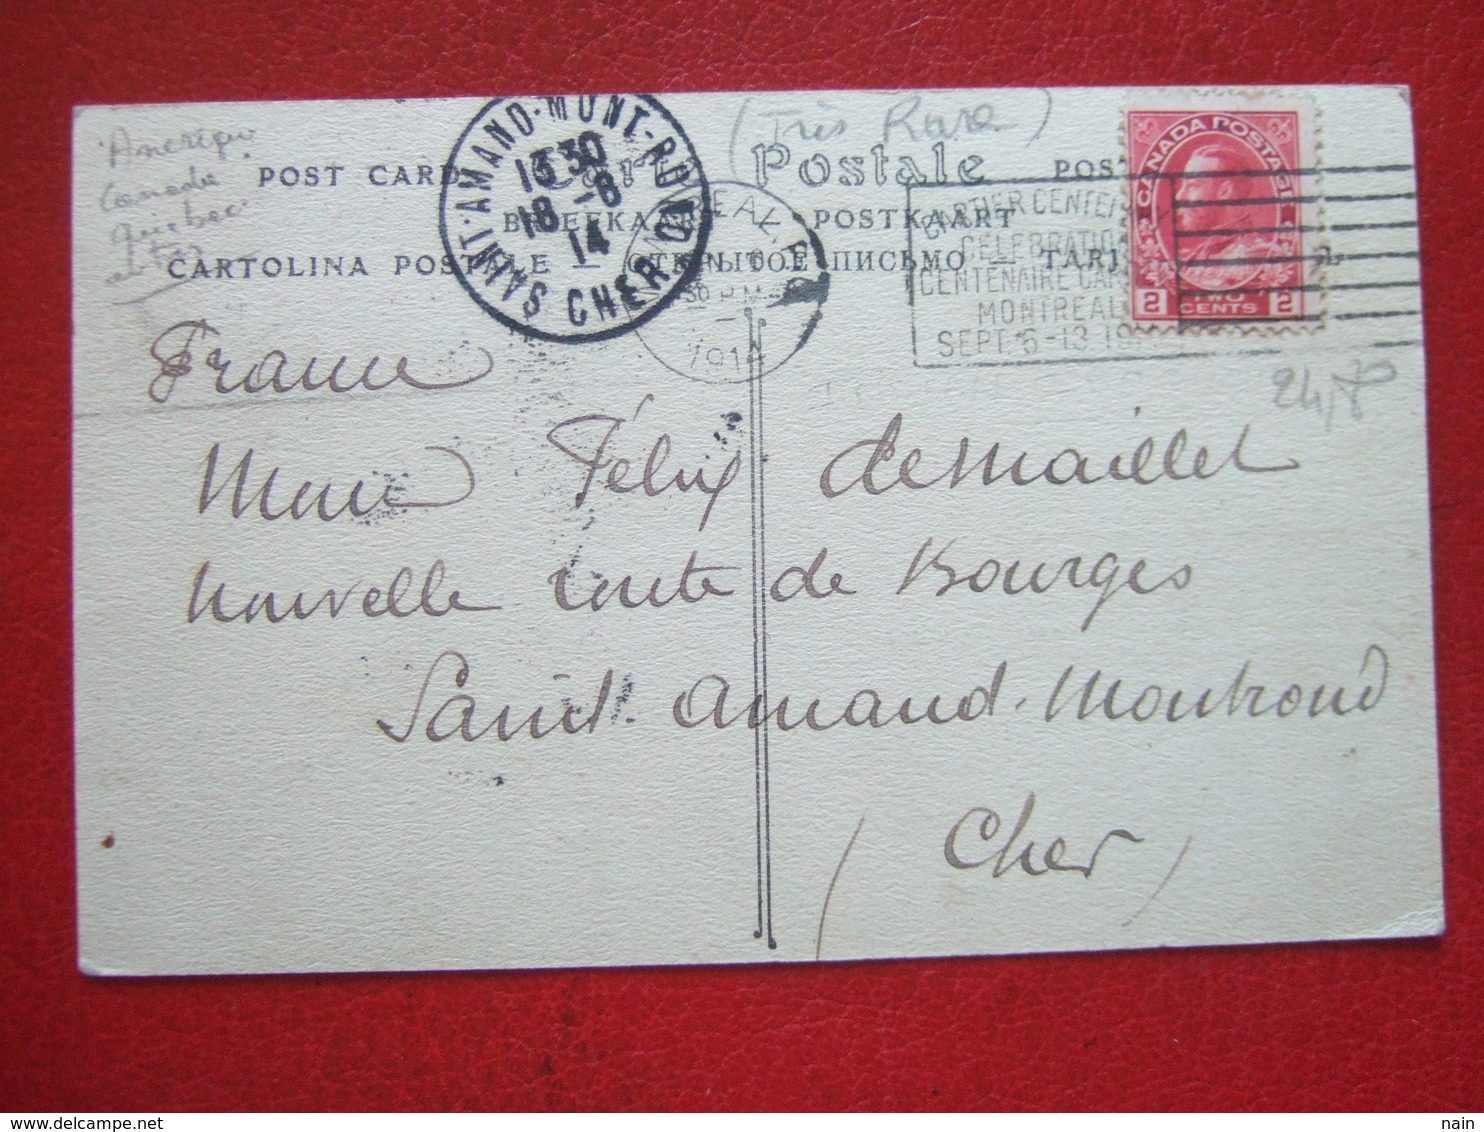 (Très Rare)
Amerique
Canada
Quebec
autos
POST CARD Carte Postale POS
BRIEFKAART — POSTKAART
CARTOLINA POSTALE — ОТКРЫТОЕ ПИСЬМО — TARJ
SAINT-AMAND-MONT-ROND
13 30
18 -8
14
CHER
MONTREAL, P.Q.
30 PM
1914
CARTIER CENTEN
CELEBRATION
CENTENAIRE CAR
MONTREAL
SEPT. 6-13. 19
CANADA POSTAGE
2 TWO CENTS 2
24,80
France
Félix deMaillet
Nouvelle route de Bourges
Saint. Amand. Montrond
(Cher)
nain